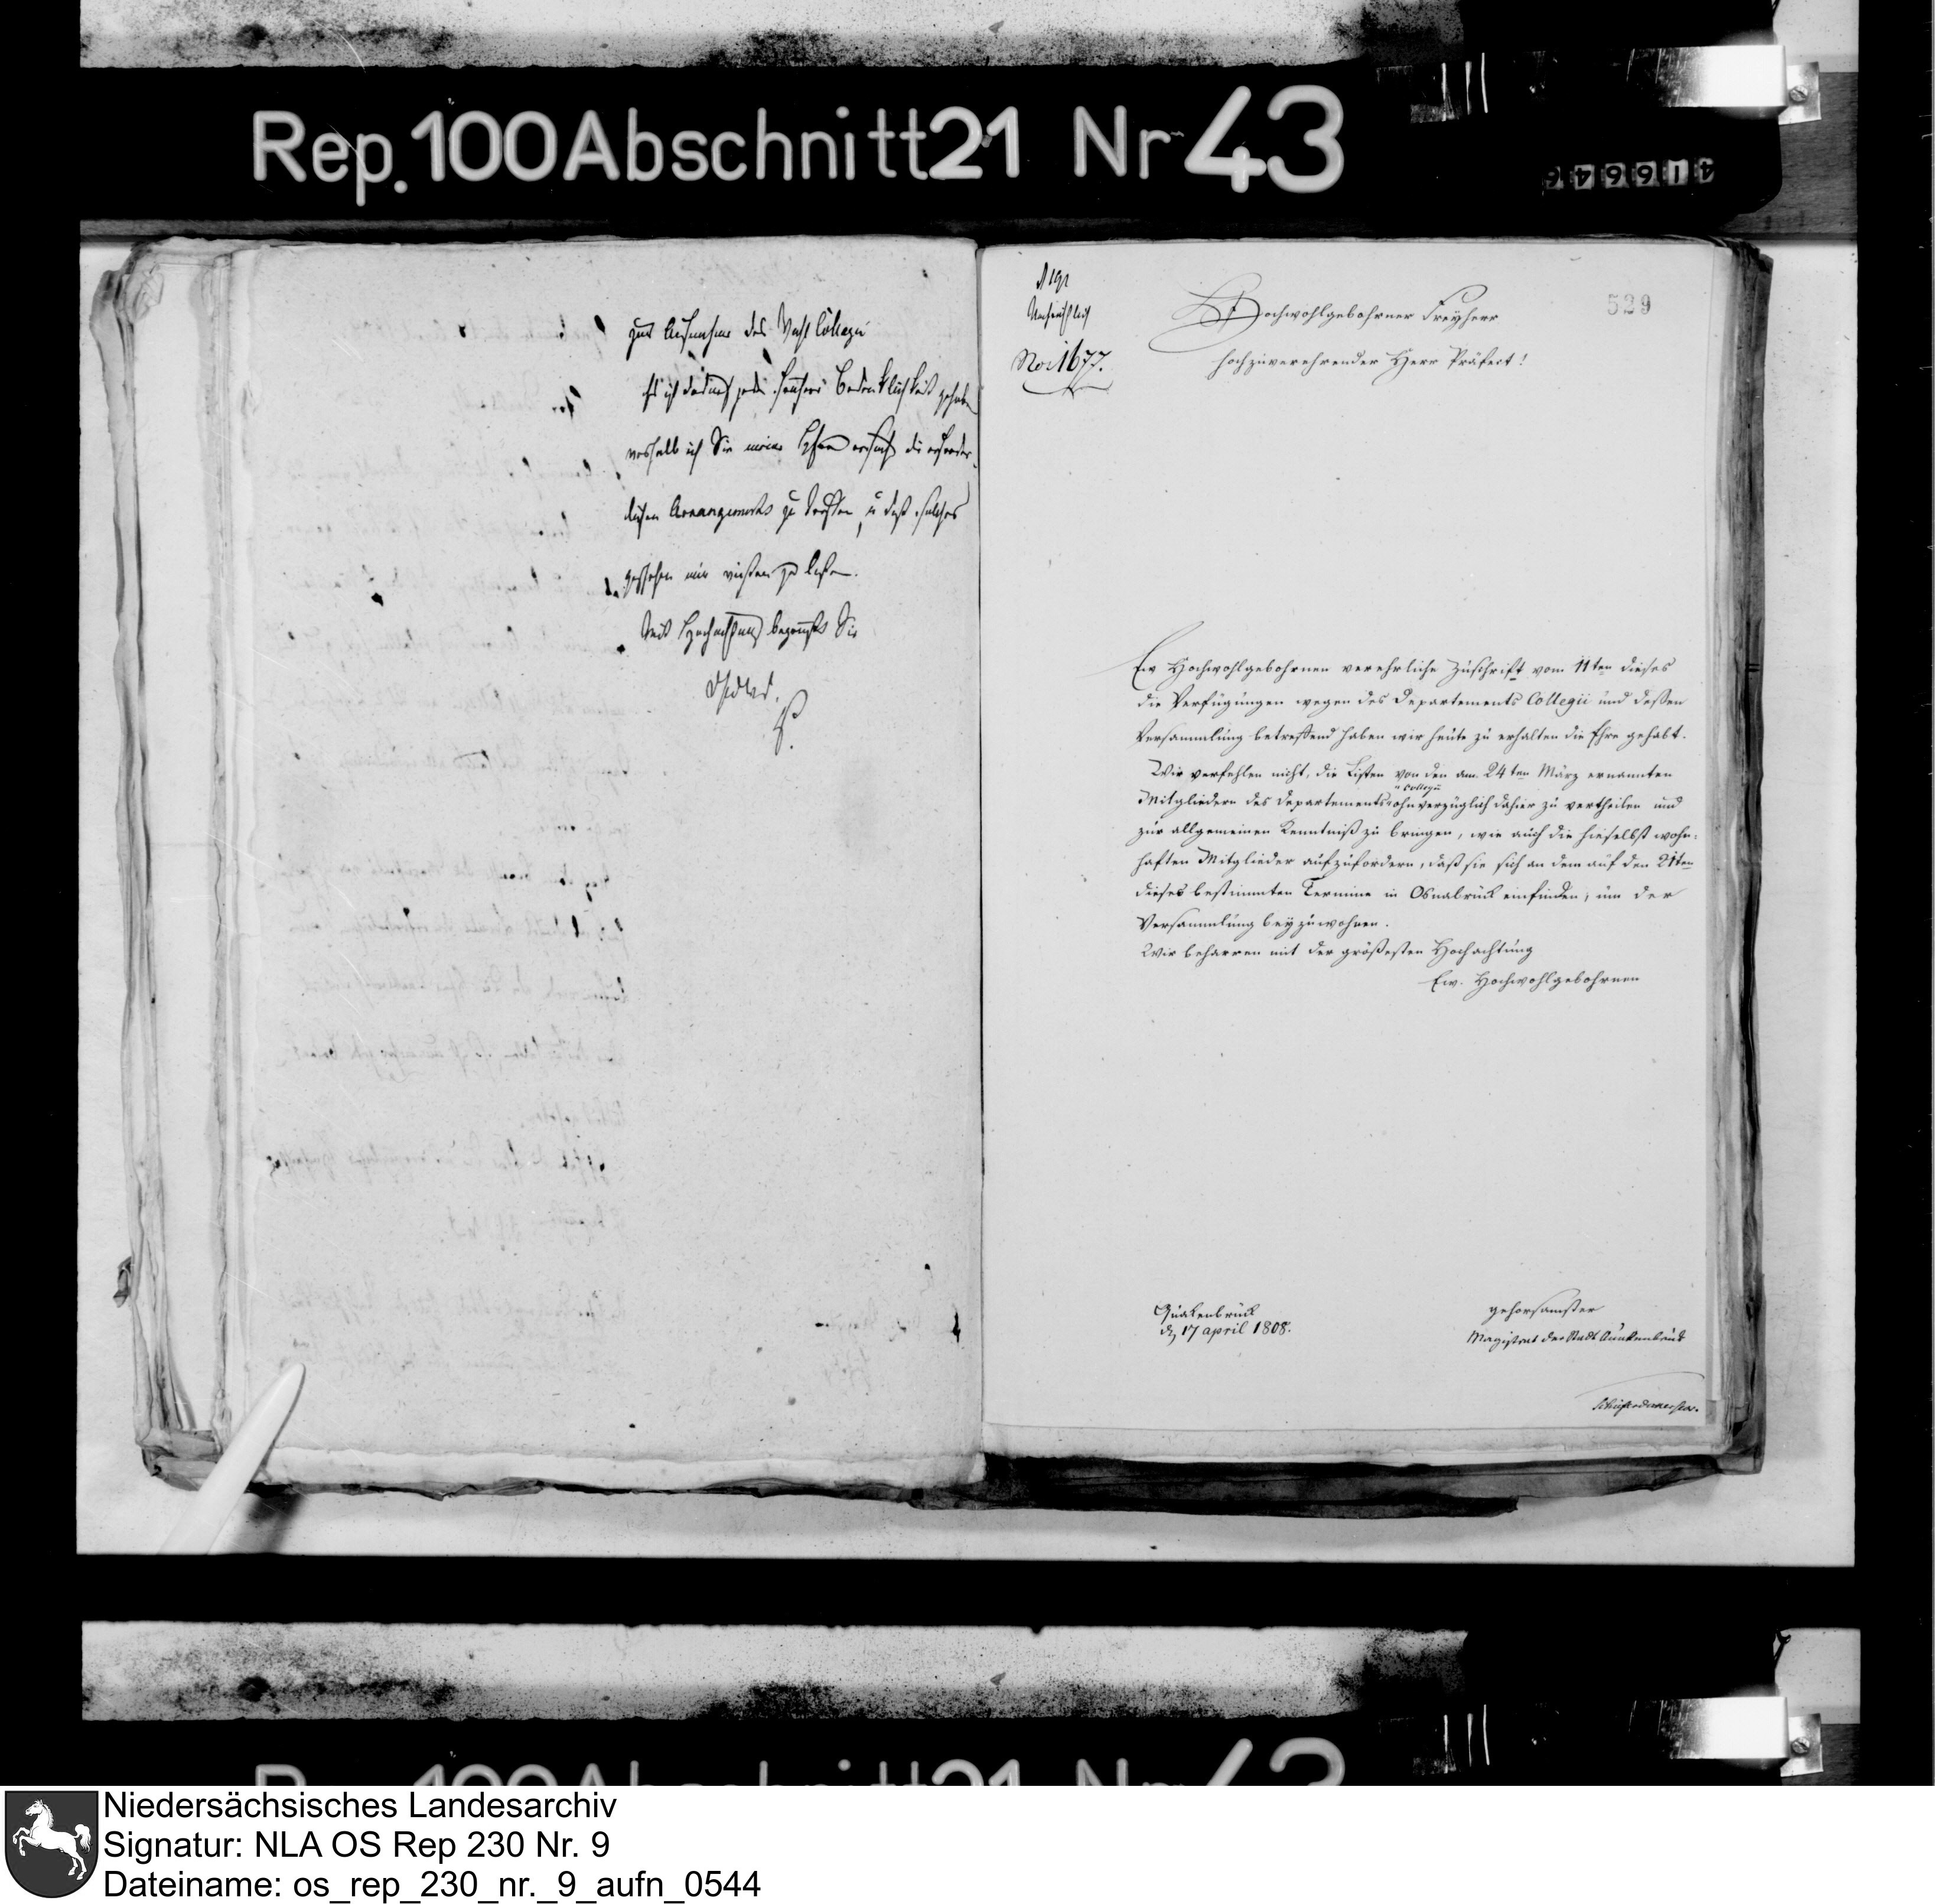 Rep. 100 Abschnitt 21 Nr 43
zur Aufnahme des Wahl Collegii
weshalb ich Sie meine Herrn ersuche die erforder-
lichen Arrangements zu treffen, u daß solches
geschehen mir wissen zu laßen.
Mit Hochachtung begrüße Sie
No. 1677.
529
Hochwohlgebohrner Freyherr
hochzuverehrender Herr Präfect!
Ew Hochwohlgebohrnen verehrliche Zuschrift vom 11ten dieses
die Verfügungen wegen des Departements Collegii und deßen
Versammlung betreffend haben wir heute zu erhalten die Ehre gehabt.
Wir verfehlen nicht, die Listen von den am 24ten März ernannten
Mitgliedern des Departements Collegii ohnverzüglich dahier zu vertheilen und
zur allgemeinen Kenntniß zu bringen, wie auch die hieselbst wohn-
haften Mitglieder aufzufordern, daß sie sich an dem auf den 21ten
dieses bestimmten Termine in Osnabrück einfinden, um der
Versammlung beyzuwohnen.
Wir beharren mit der größesten Hochachtung
Ew. Hochwohlgebohrnen
Quakenbrück
d. 17 april 1808.
gehorsamster
Magistrat der Stadt Quakenbrück
Niedersächsisches Landesarchiv
Signatur: NLA OS Rep 230 Nr. 9
Dateiname: os_rep_230_nr._9_aufn_0544